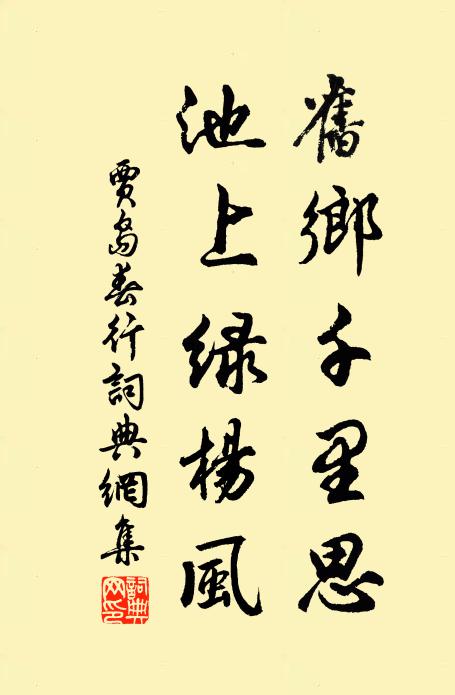 舊鄉千里思
池上綠楊風
賈島春行詞典網集
詞典網印